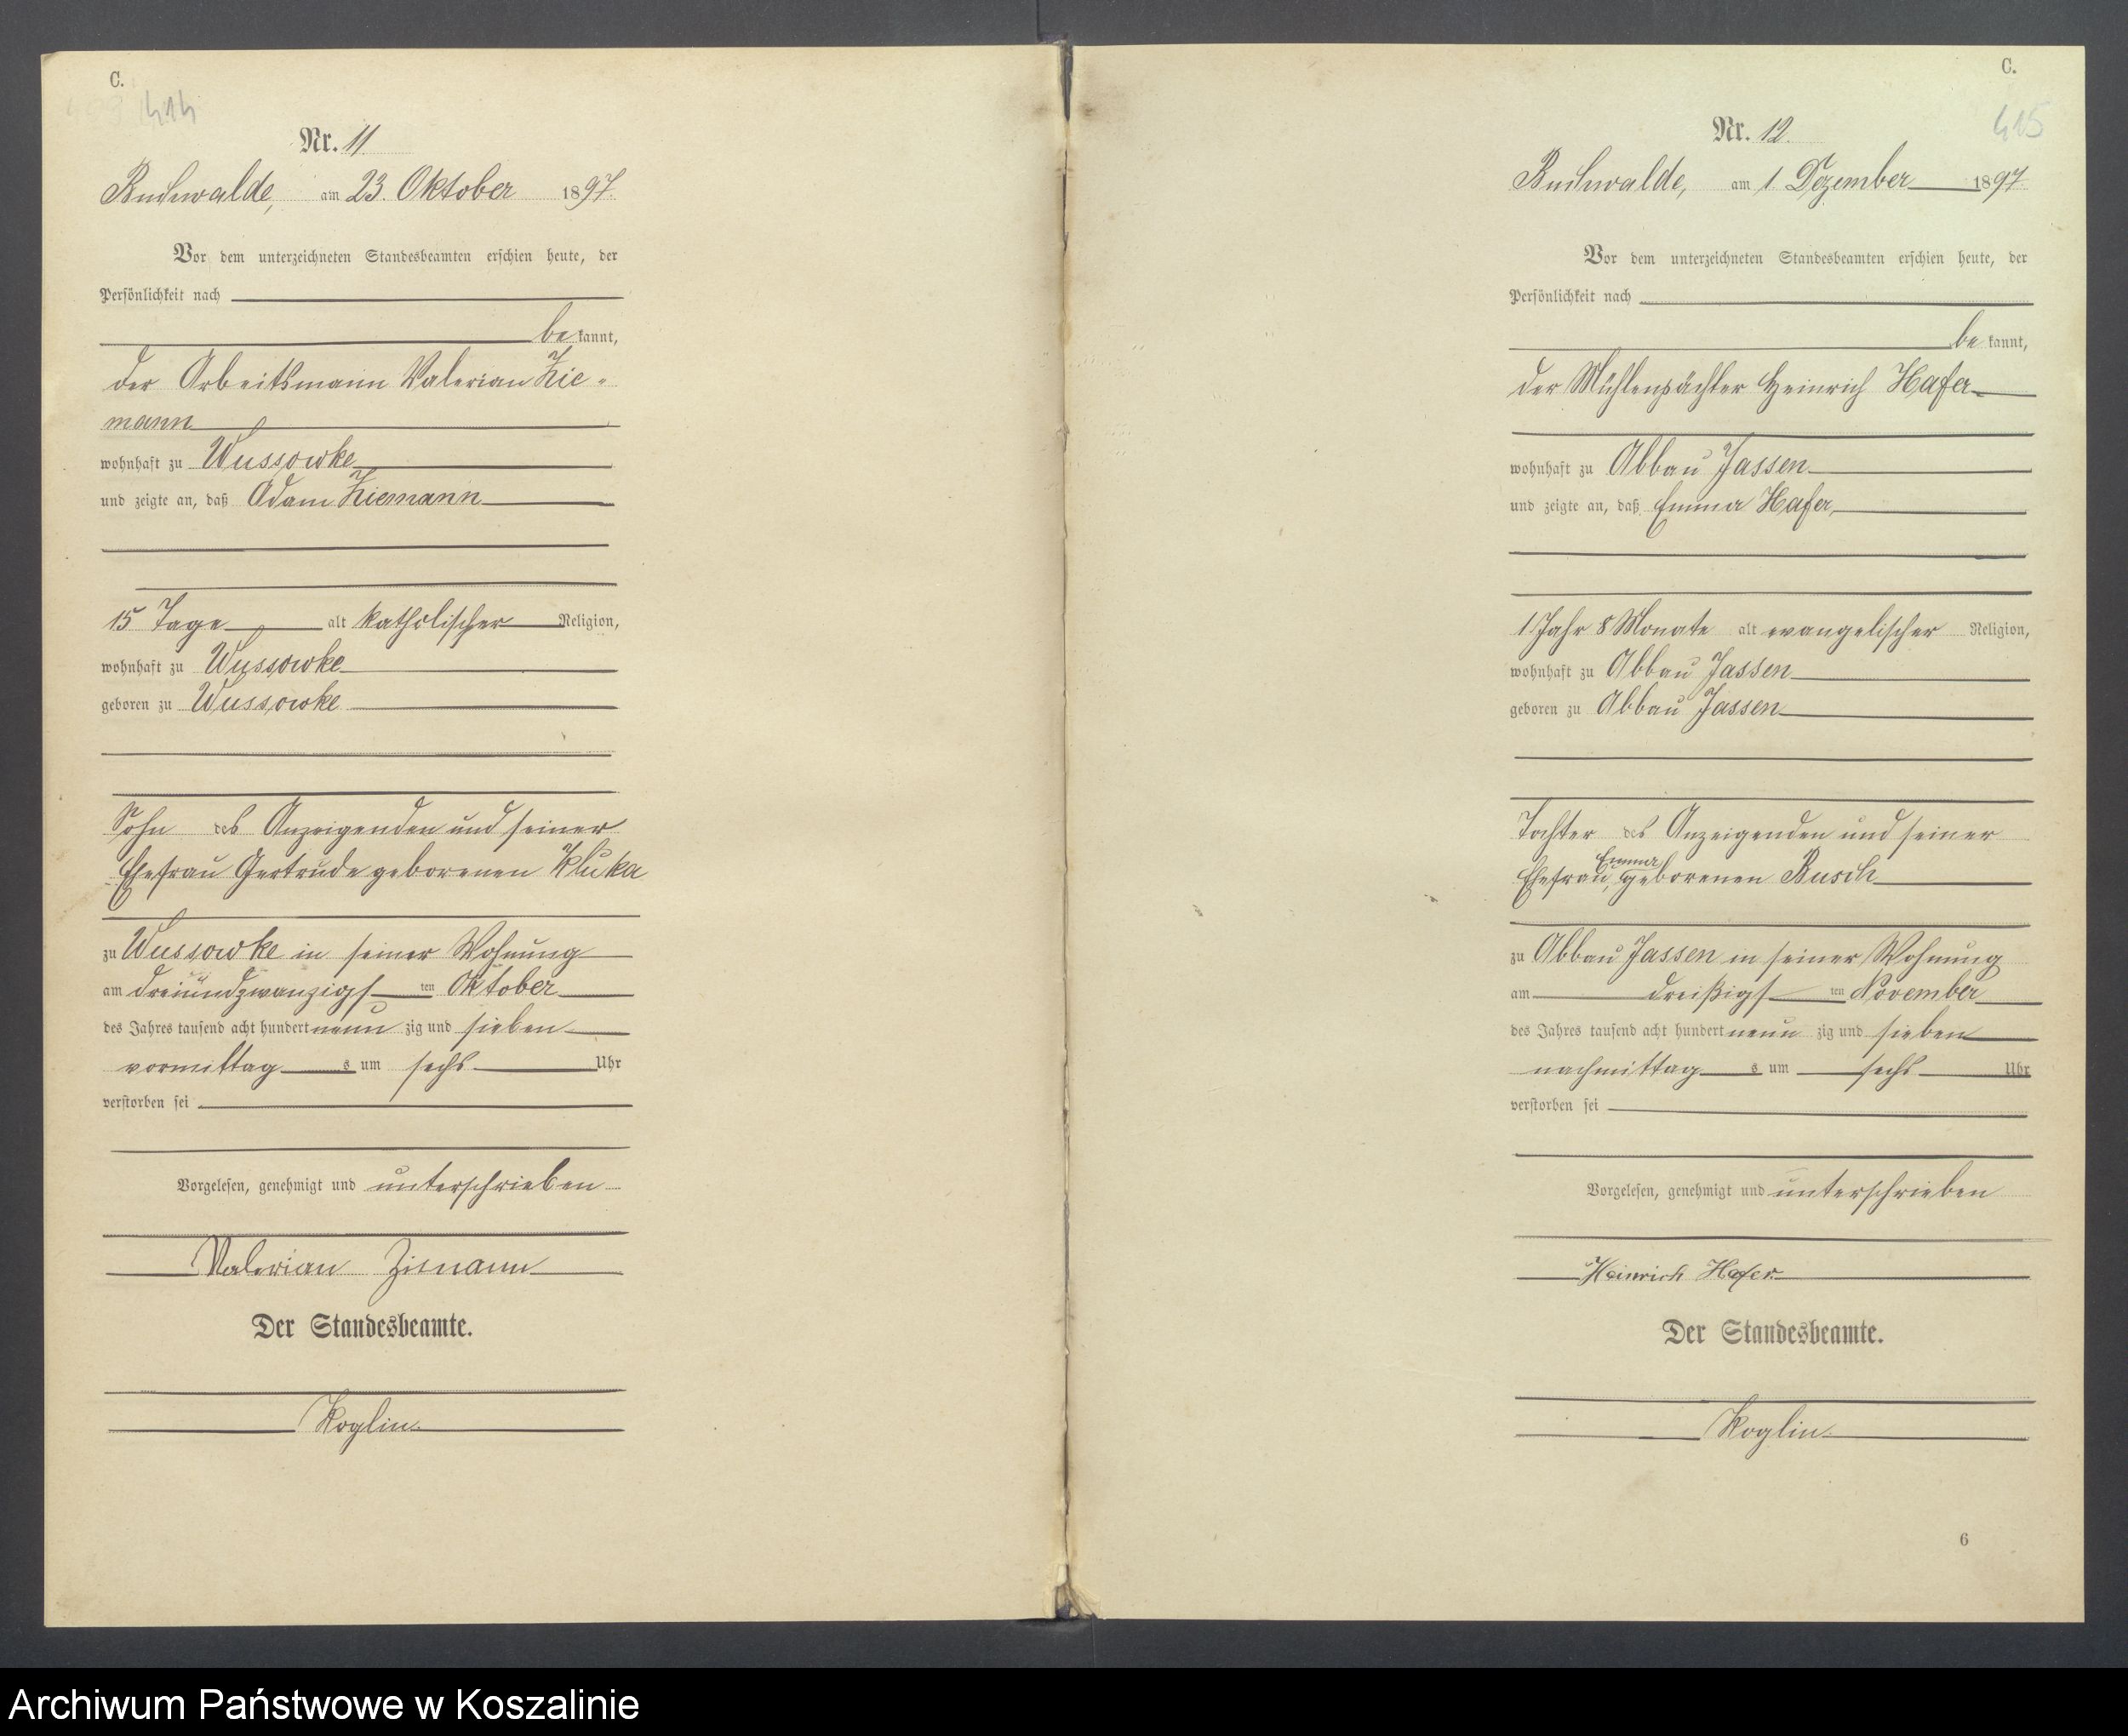 C.
414
Nr. 11
Buchwalde, am 23. Oktober 1897.
Vor dem unterzeichneten Standesbeamten erschien heute, der
Persönlichkeit nach
be kannt,
der Arbeitsmann Valerian Zie-
mann
wohnhaft zu Wussowke
und zeigte an, daß Adam Ziemann
15 Tage alt katholischer Religion,
wohnhaft zu Wussowke
geboren zu Wussowke
Sohn des Anzeigenden und seiner
Ehefrau Gertrude geborenen Kluka
zu Wussowke in seiner Wohnung
am dreiundzwanzigs ten Oktober
des Jahres tausend acht hundert neun zig und sieben
vormittag s um sechs Uhr
verstorben sei
Vorgelesen, genehmigt und unterschrieben
Valerian Zimann
Der Standesbeamte.
Koglin.
C.
415
Nr. 12.
Buchwalde, am 1 Dezember 1897
Vor dem unterzeichneten Standesbeamten erschien heute, der
Persönlichkeit nach
be kannt,
der Mühlenpächter Heinrich Hafer
wohnhaft zu Abbau Jassen
und zeigte an, daß Emma Hafer,
1 Jahr 8 Monate alt evangelischer Religion,
wohnhaft zu Abbau Jassen
geboren zu Abbau Jassen
Tochter des Anzeigenden und seiner
Ehefrau, Emma geborenen Busch
zu Abbau Jassen in seiner Wohnung
am dreißigs ten November
des Jahres tausend acht hundert neun zig und sieben
nachmittag s um sechs Uhr
verstorben sei
Vorgelesen, genehmigt und unterschrieben
Heinrich Hafer.
Der Standesbeamte.
Koglin.
6
Archiwum Państwowe w Koszalinie